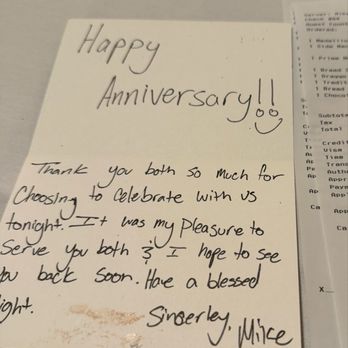 Happy
Anniversary!!
Thank you both so much for
Choosing to celebrate with us
tonight. It was my Pleasure to
Serve you both & I hope to see
you back soon. Have a blessed
night.
Sincerley,
Mike
Ordered:
1 Medallio
1 Side
1 Prime
1 Bread
1 Bread
1 Chocol
Subtota
Tax
Total
Credi
Visa
Time
Trans
Auth
Appr
Paym
Ap
Ca
App
X